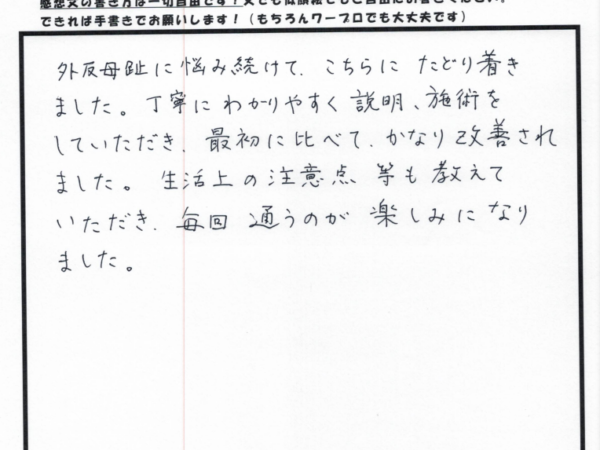 感想文の書き方は一切自由です！文でも似顔絵でもご自由にお書きください。
できれば手書きでお願いします！（もちろんワープロでも大丈夫です）
外反母趾に悩み続けて、こちらに たどり着き
ました。丁寧に わかりやすく 説明、施術を
していただき、最初に比べて、かなり改善され
ました。生活上の注意点 等も教えて
いただき、毎回 通うのが 楽しみになり
ました。